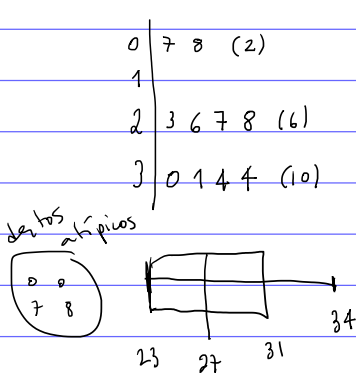 0 | 7 8 (2)
1 |
2 | 3 6 7 8 (6)
3 | 0 1 4 4 (10)
datos
atípicos
7 8
23 27 31 34